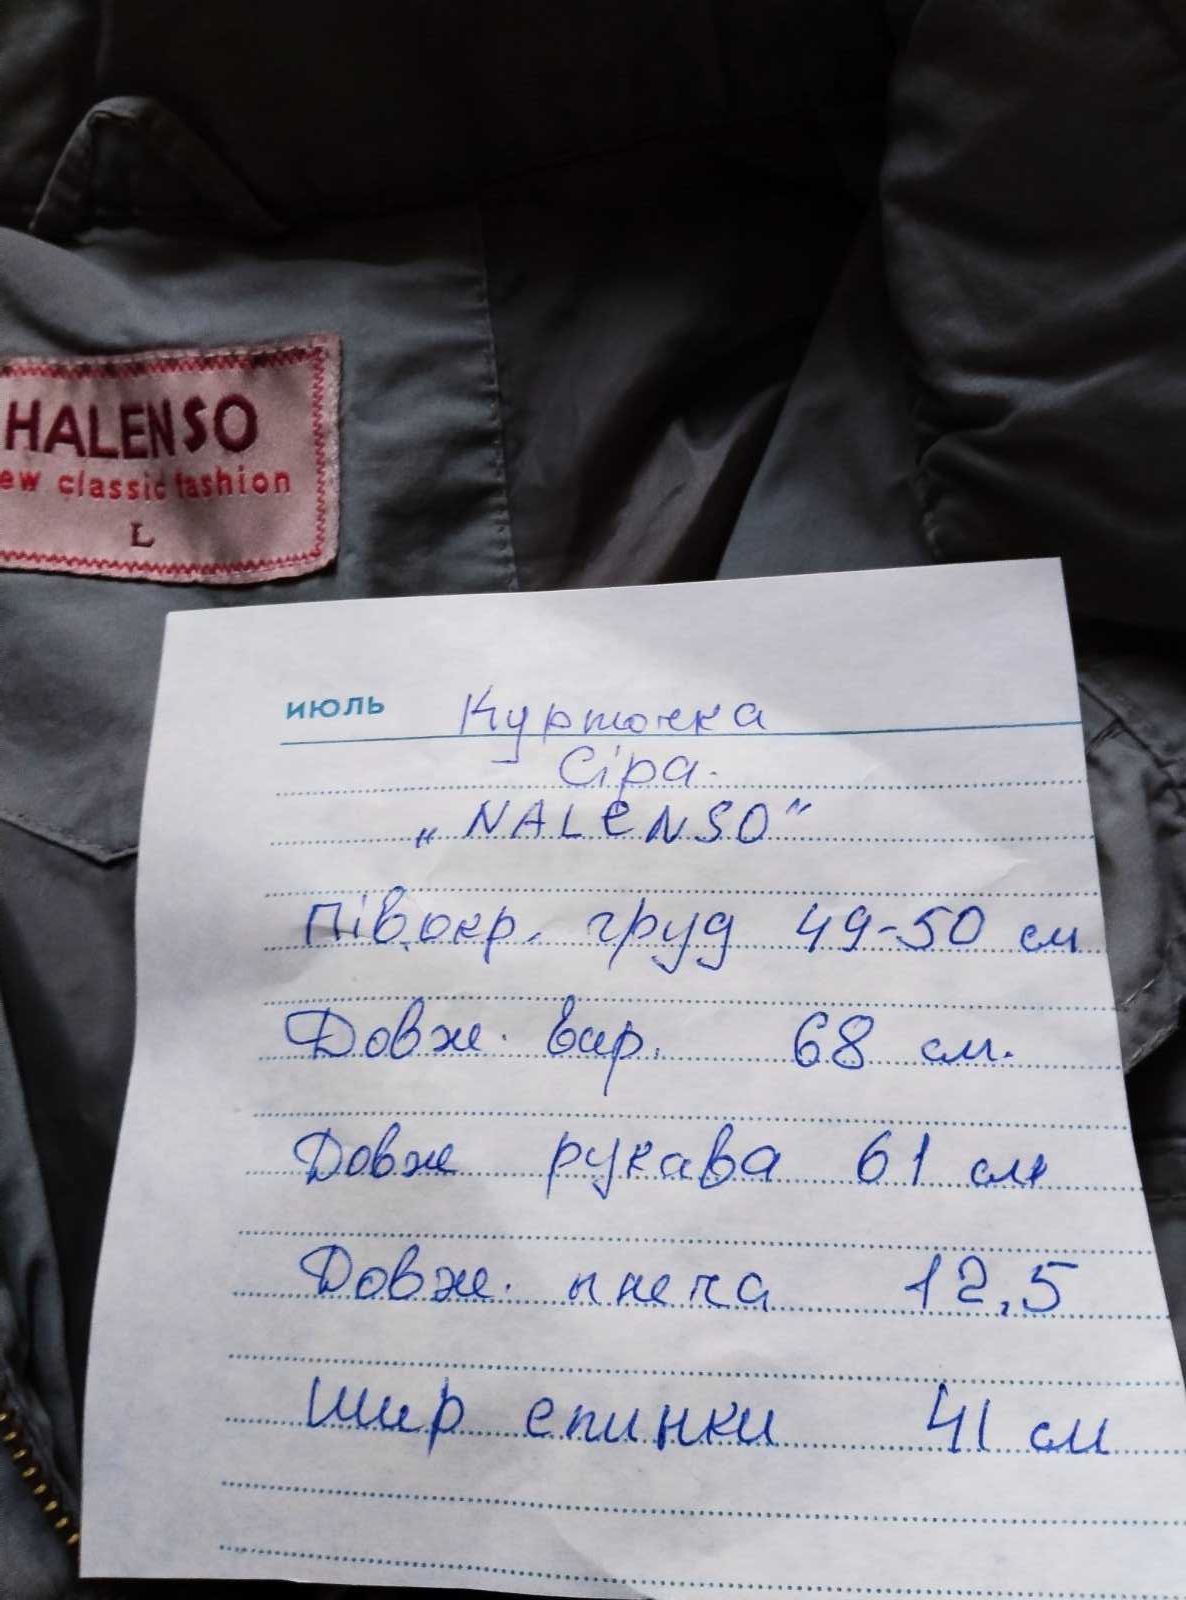 HALENSO
ew classic fashion
L
ИЮЛЬ Курточка
Сіра.
„NALENSO"
Півокр. груд 49-50 см
Довж. вир. 68 см.
Довж рукава 61 см
Довж. плеча 12,5
Шир спинки 41 см